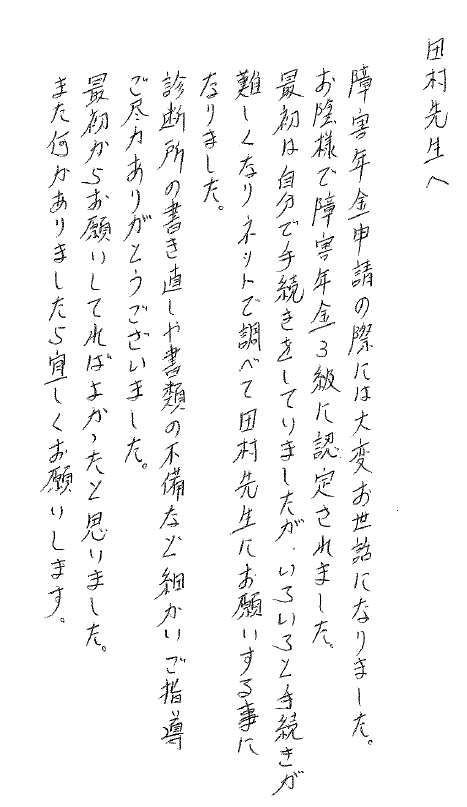 田村先生へ
障害年金申請の際には大変お世話になりました。
お陰様で障害年金3級に認定されました。
最初は自分で手続きをしていましたが、いろいろと手続きが
難しくなりネットで調べて田村先生にお願いする事に
なりました。
診断所の書き直しや書類の不備など細かいご指導
ご尽力ありがとうございました。
最初からお願いしてればよかったと思いました。
また何かありましたら宜しくお願いします。